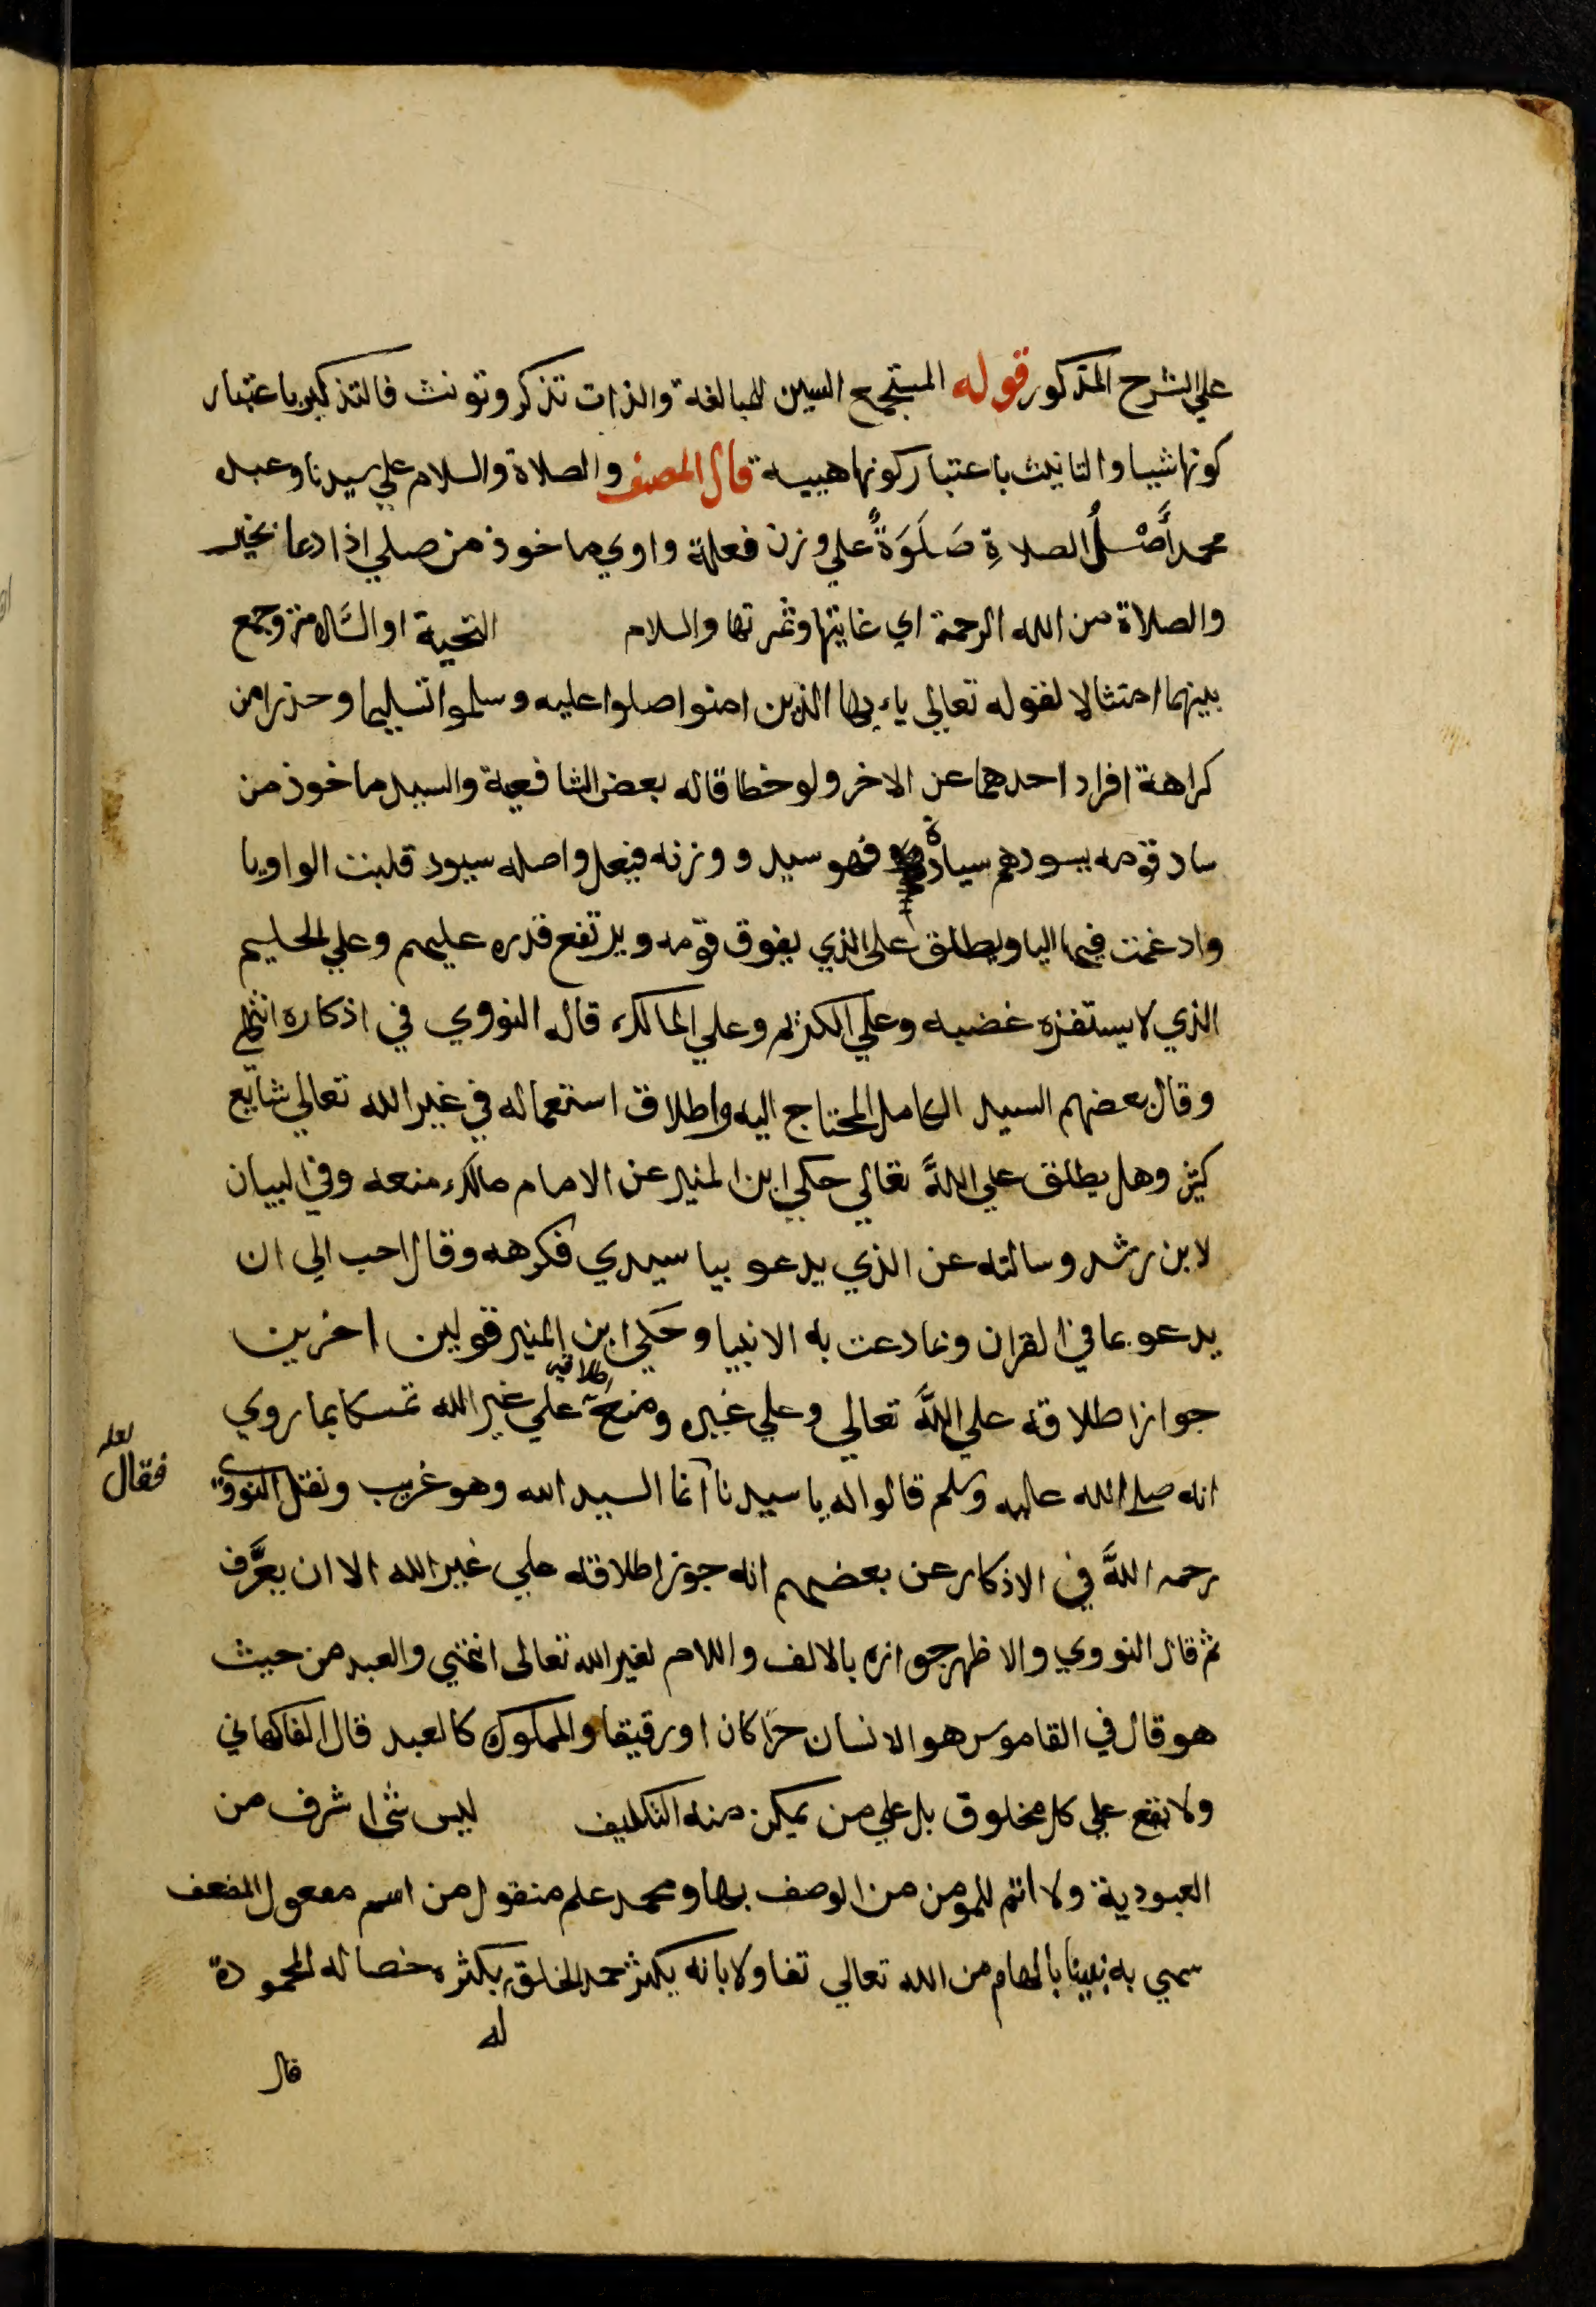 علي الشرح المذكور قوله المستجمع السين للمبالغة والذات تذكر وتونث فالتذكير باعتبار
كونها شيا والتانيث باعتبار كونها هيية قال المصنف والصلاة والسلام علي سيدنا وعبده
محمد أَصْلُ الصلاةِ صَلَوَةٌ علي وزن فعلة واوي ماخوذ من صلي اذا دعا بخير
والصلاة من الله الرحمة اي غايتها وثمرتها والسلام التحية او السَّلامة وجمع
بينهما امتثالا لقوله تعالي ياء يها الذين امنوا صلوا عليه وسلموا تسليما وحذرا من
كراهة افراد احدهما عن الاخر ولو خطا قاله بعض الشافعية والسيد ماخوذ من
ساد قومه يسودهم سيادة فهو سيد ووزنه فيعل واصله سيود قلبت الواو يا
وادغمت فيها اليا ويطلق علي الذي يفوق قومه ويرتفع قدره عليهم وعلي الحليم
الذي لا يستفزه غضبه وعلي الكريم وعلي المالك قاله النووي في اذكاره انتهي
وقال بعضهم السيد الكامل المحتاج اليه واطلاق استعماله في غير الله تعالي شايع
كثير وهل يطلق علي اللَّه تعالي حكي ابن المنير عن الامام مالك منعه وفي البيان
لابن رشد وسالته عن الذي يدعو بيا سيدي فكرهه وقال احب الي ان
يدعو بما في القران وبما دعت به الانبيا وحكي ابن المنير قولين اخرين
جواز اطلاقه علي اللَّه تعالي وعلي غيره ومنع اطلاقه علي غير الله تمسكا بما روي
انه صلي الله عليه وسلم قالوا له يا سيدنا آنما السيد الله وهو غريب ونقل النووي
لعله
فقال
رحمه اللَّه في الاذكار عن بعضهم انه جوز اطلاقه علي غير الله الا ان يعَّرف
ثم قال النووي والاظهر جوازه بالالف واللام لغير الله تعالي انتهي والعبد من حيث
هو قال في القاموس هو الانسان حرا كان او رقيقا والمملوك كالعبد قال الفاكهاني
ولا يقع علي كل مخلوق بل علي من يمكن منه التكليف ليس شي اشرف من
العبودية ولا اتم للمومن من الوصف بها ومحمد علم منقول من اسم مفعول المضعف
سمي به نبينا بالهام من الله تعالي تفاولا بانه يكثر حمد الخلق له بكثرة خصاله المحمودة
قال